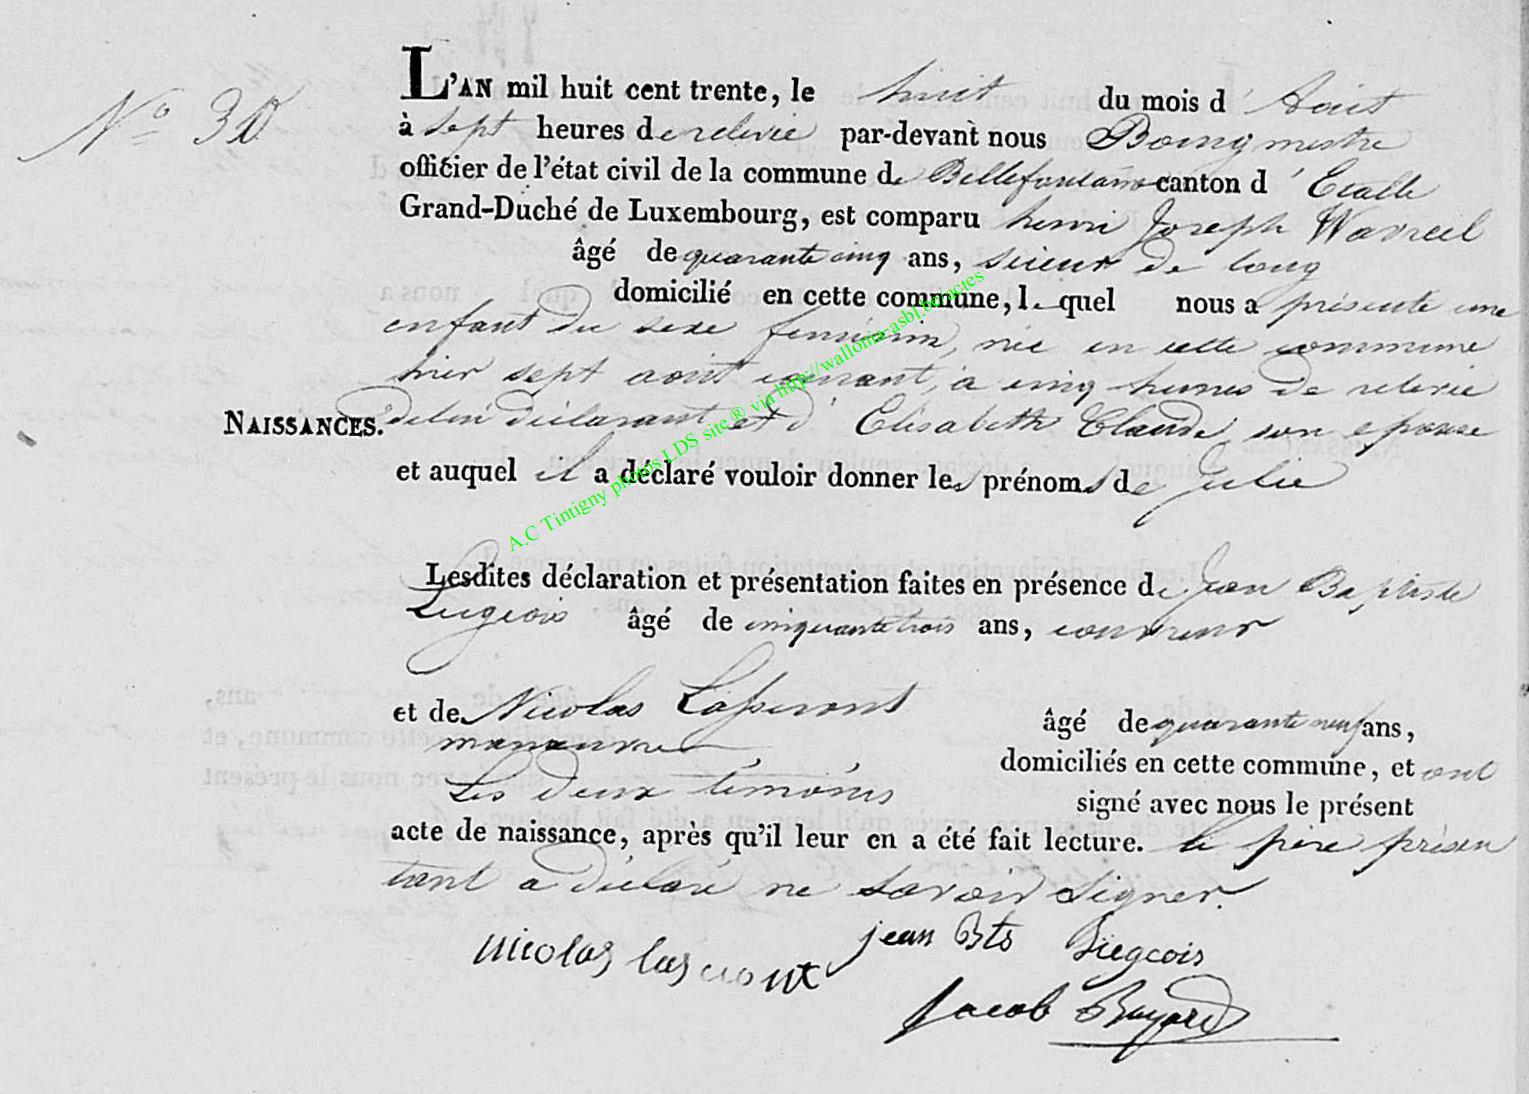 N.º 30
L'AN mil huit cent trente, le huit du mois d'Aout
à sept heures de relevée par-devant nous Bourgmestre
officier de l'état civil de la commune de Bellefontaine canton d'Etalle
Grand-Duché de Luxembourg, est comparu henri Joseph
âgé de quarante cinq ans, scieur de long
domicilié en cette commune, le quel nous a présenté une
enfant du sexe féminin, née en cette commune
hier sept aout courant, à cinq heures de relevée
NAISSANCES. de lui déclarant et d'Elisabeth Claude, son epouse
et auquel il a déclaré vouloir donner les prénoms de Julie
Lesdites déclaration et présentation faites en présence de Jean Baptiste
Liégeois âgé de cinquante trois ans, couvreur
et de Nicolas âgé de quarante neuf ans,
manœuvre domiciliés en cette commune, et ont
Les deux témoins signé avec nous le présent
acte de naissance, après qu'il leur en a été fait lecture. le père présen
tant a déclaré ne savoir signer.
nicolas jean Bts Liegeois
Jacob Buyard
A.C Tintigny photos LDS site ® via http://wallonia-asbl.be/actes